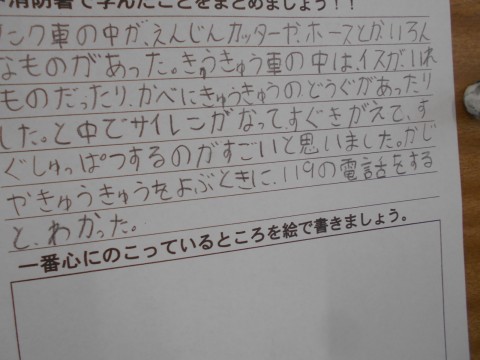 消防署で学んだことをまとめましょう！！
ンク車の中が、えんじんカッターや、ホースとかいろん
なものがあった。きゅうきゅう車の中は、イスが、いれ
ものだったり、かべにきゅうきゅうのどうぐがあったり
した。と中でサイレンがなって、すぐきがえて、す
ぐしゅっぱつするのがすごいと思いました。かじ
やきゅうきゅうをよぶときに、119の電話をする
と、わかった。
一番心にのこっているところを絵で書きましょう。